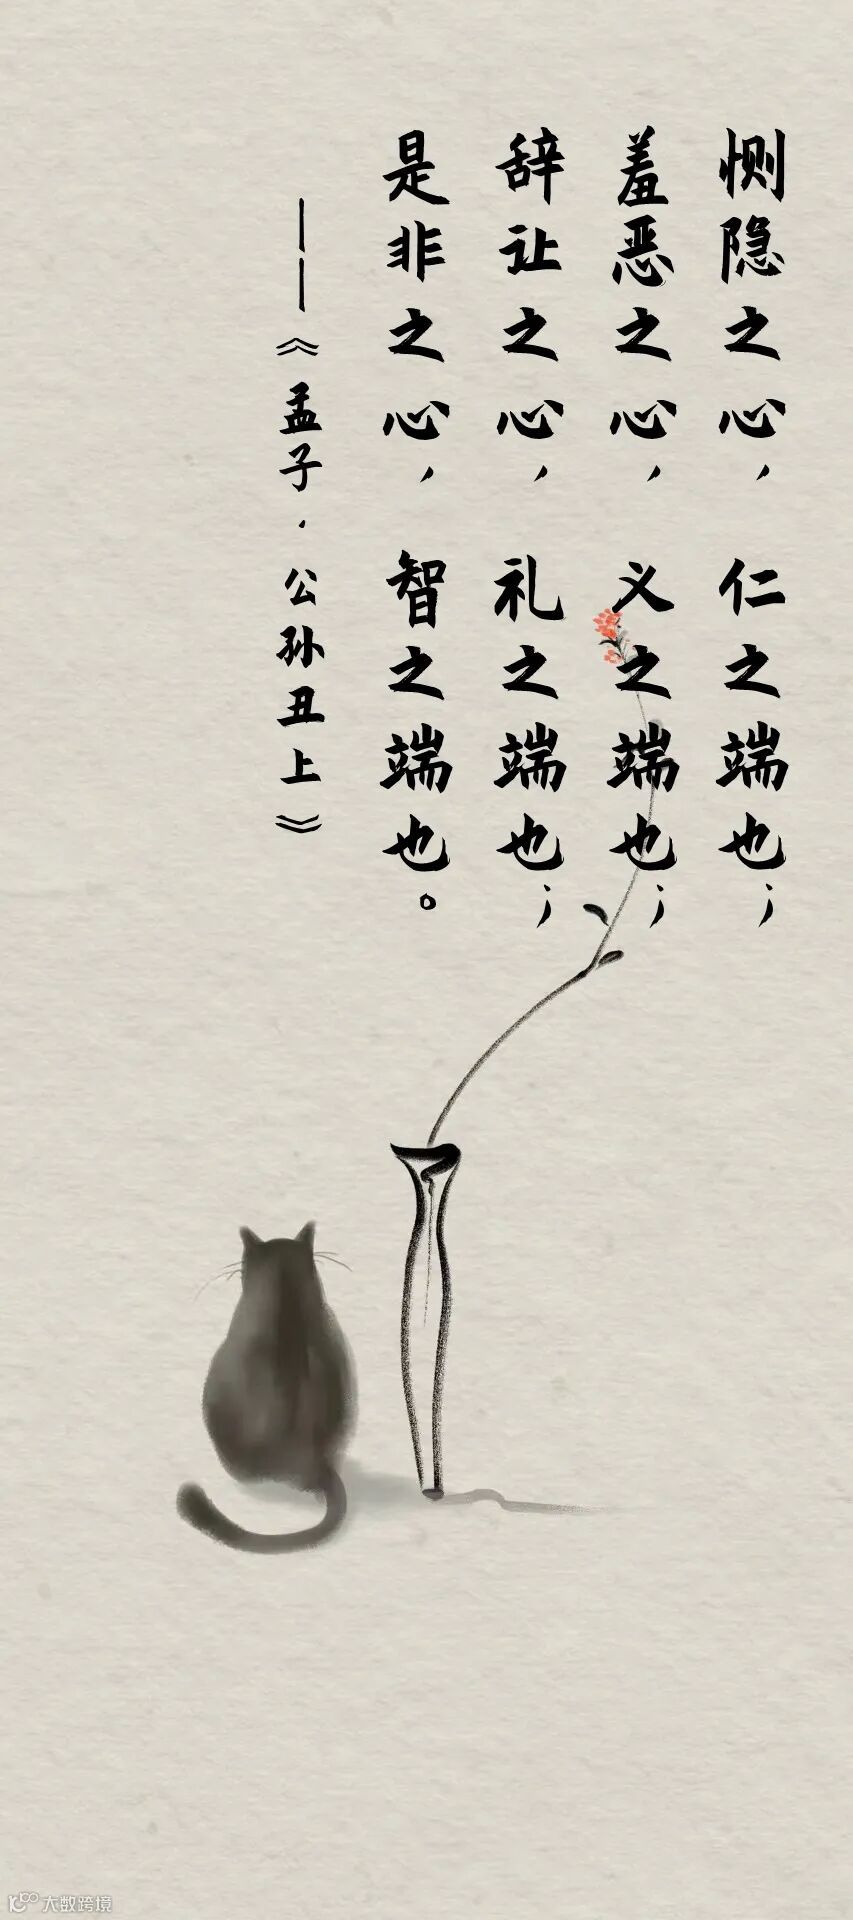 恻隐之心，仁之端也；
羞恶之心，义之端也；
辞让之心，礼之端也；
是非之心，智之端也。
——《孟子·公孙丑上》
大数跨境